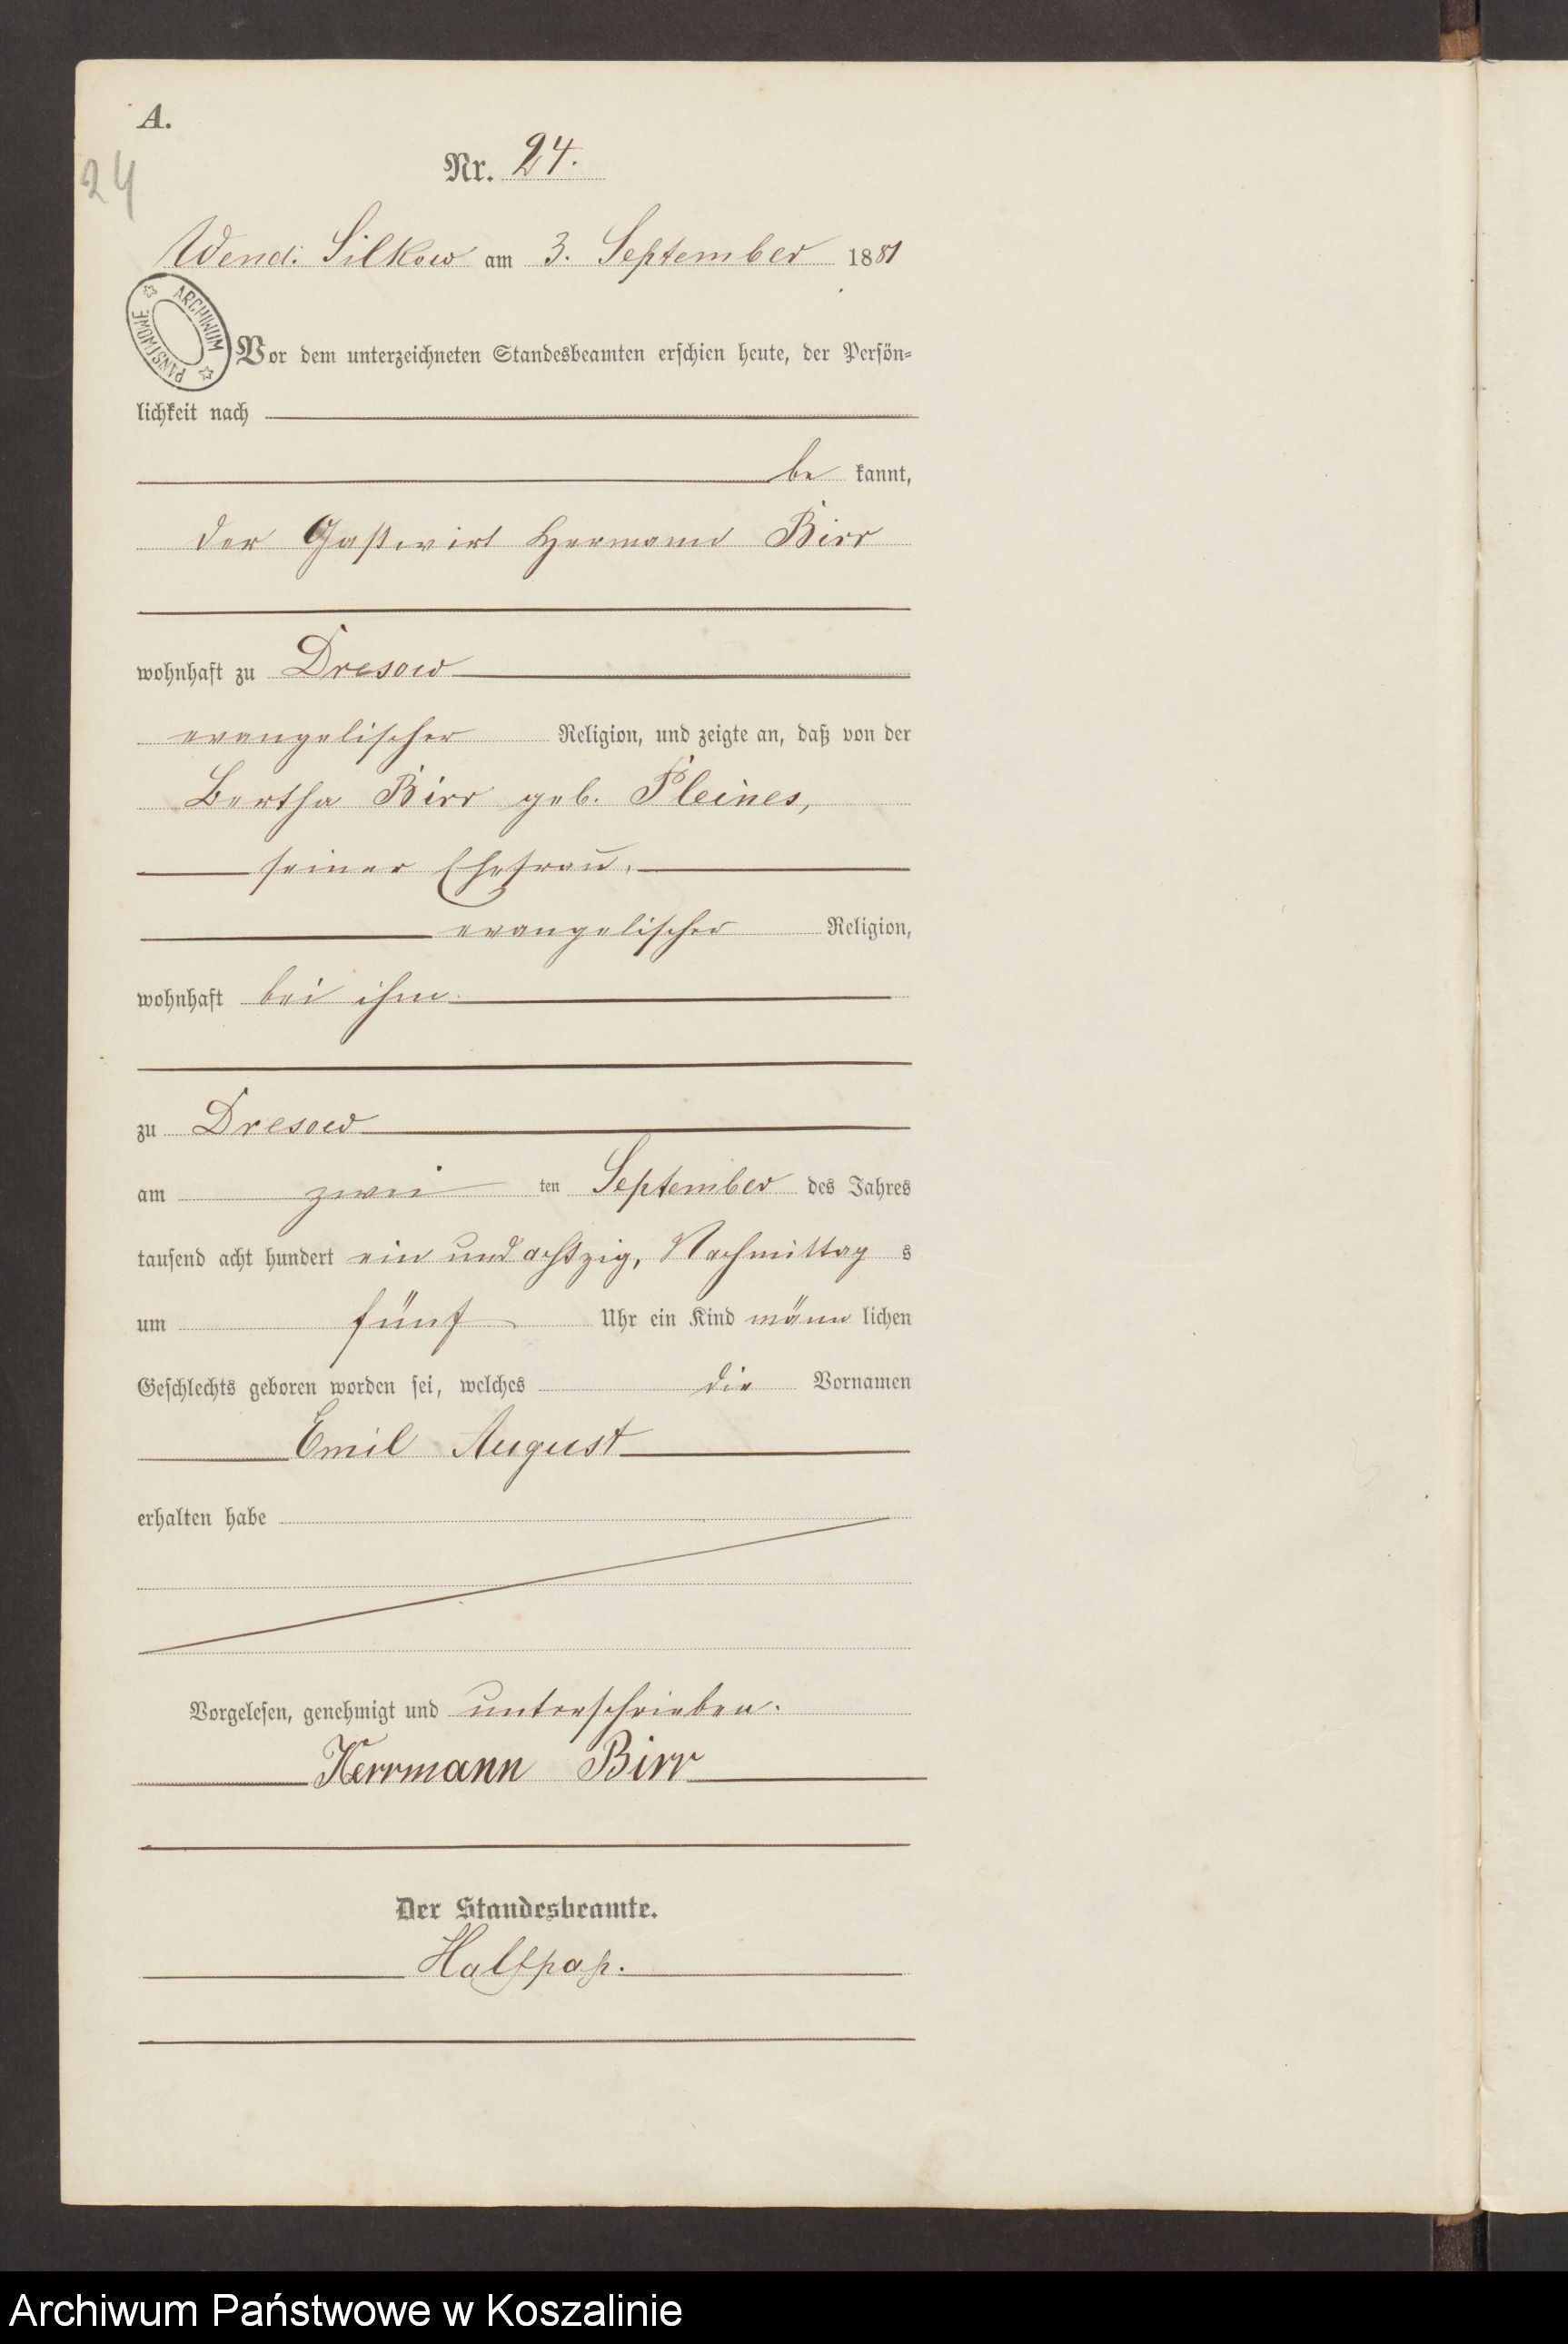 A.
24
Nr. 24.
Wend. Silkow am 3. September 1881
ARCHIWUM PAŃSTWOWE
Vor dem unterzeichneten Standesbeamten erschien heute, der Persön-
lichkeit nach
be kannt,
der Gastwirt Hermann Birr
wohnhaft zu Dresow
evangelischer Religion, und zeigte an, daß von der
Bertha Birr geb. Pleines,
seiner Ehefrau,
evangelischer Religion,
wohnhaft bei ihm
zu Dresow
am zwei ten September des Jahres
tausend acht hundert ein und achtzig, Nachmittag s
um fünf Uhr ein Kind männ lichen
Geschlechts geboren worden sei, welches die Vornamen
Emil August
erhalten habe
Vorgelesen, genehmigt und unterschrieben.
Herrmann Birr
Der Standesbeamte.
Halfpap.
Archiwum Państwowe w Koszalinie